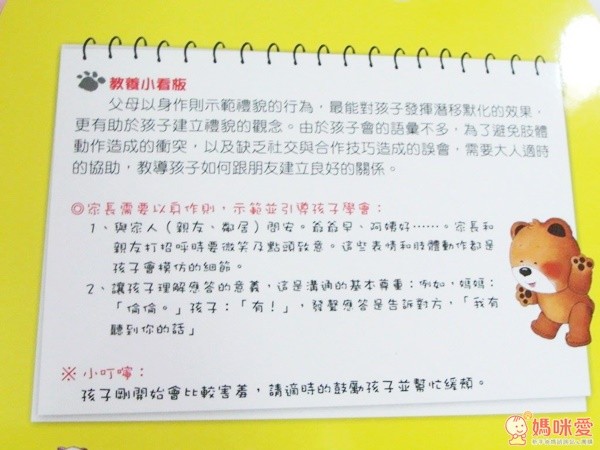 教養小看板
父母以身作則示範禮貌的行為，最能對孩子發揮潛移默化的效果，
更有助於孩子建立禮貌的觀念。由於孩子會的語彙不多，為了避免肢體
動作造成的衝突，以及缺乏社交與合作技巧造成的誤會，需要大人適時
的協助，教導孩子如何跟朋友建立良好的關係。
◎家長需要以身作則，示範並引導孩子學會：
1、與家人（親友、鄰居）問安。爸爸早、阿姨好……。家長和
親友打招呼時要微笑及點頭致意。這些表情和肢體動作都是
孩子會模仿的細節。
2、讓孩子理解應答的意義，這是溝通的基本尊重：例如，媽媽：
「倫倫。」孩子：「有！」，發聲應答是告訴對方，「我有
聽到你的話」
※ 小叮嚀：
孩子剛開始會比較害羞，請適時的鼓勵孩子並幫忙緩頰。
媽咪愛